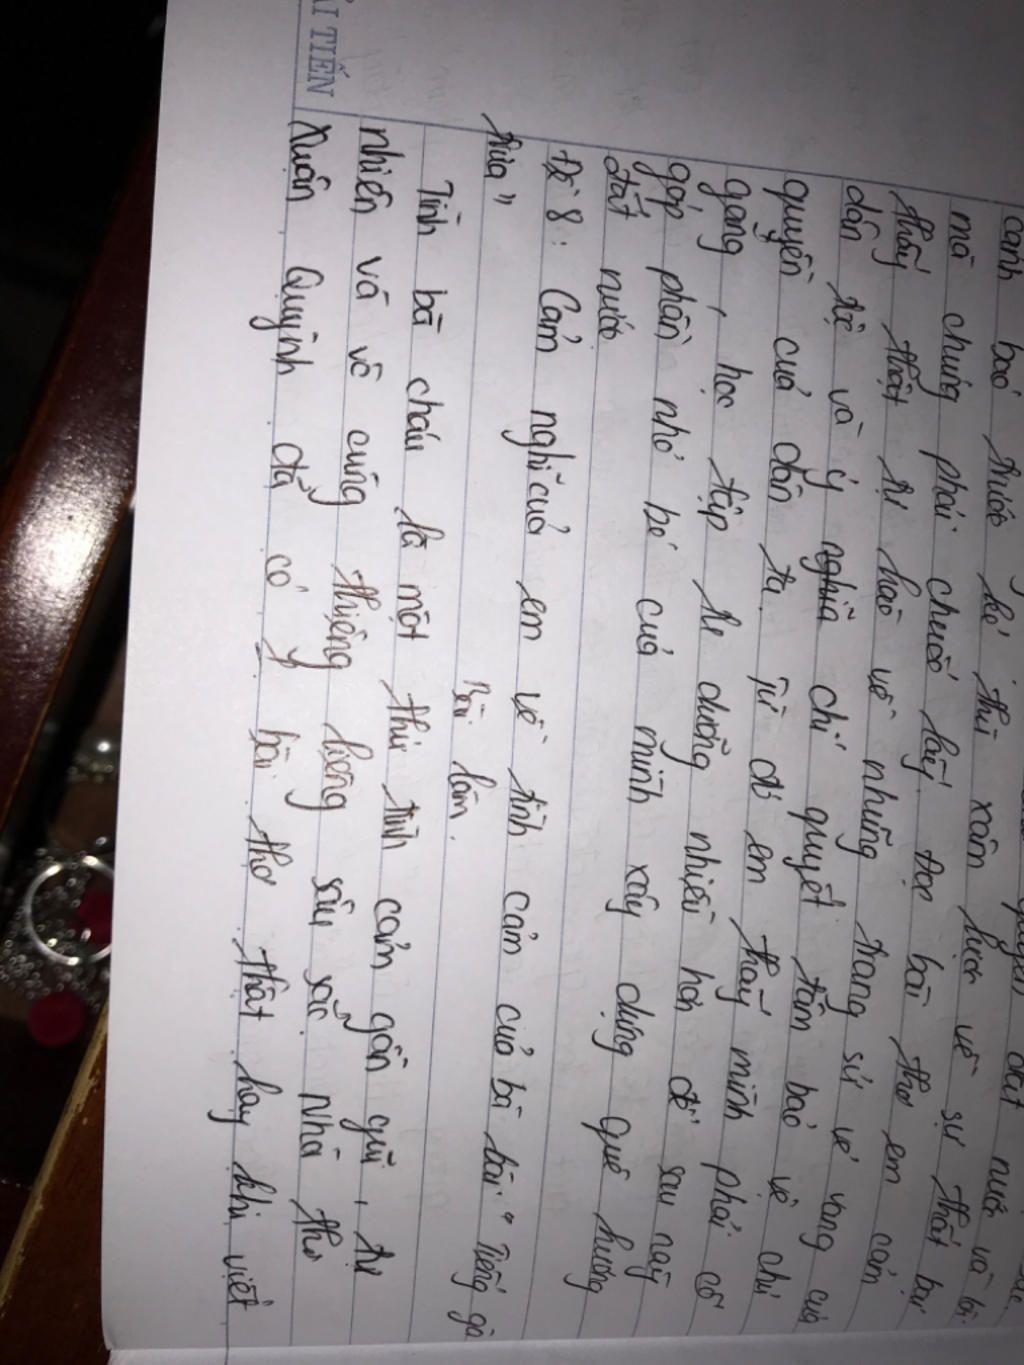 canh báo trước kẻ thù xâm lược về sự thất bại
mà chúng phải chuốc lấy. Đọc bài thơ em cảm
thấy thật tự hào về những trang sử vẻ vang của
dân tộc và ý nghĩa chí quyết tâm bảo vệ chủ
quyền của dân ta. Từ đó em thấy mình phải cố
gang, học tập tu dưỡng nhiều hơn để sau này
góp phần nhỏ bé của mình xây dựng quê hương
đất nước
Đề 8: Cảm nghĩ của em về tình cảm của bà bài "Tiếng gà
trưa"
Bài làm.
Tình bà cháu là một thứ tình cảm gần gũi, tự
nhiên và vô cùng thiêng liêng sâu sắc. Nhà thơ
Xuân Quỳnh đã có ý bài thơ thật hay khi viết
ẢI TIẾN